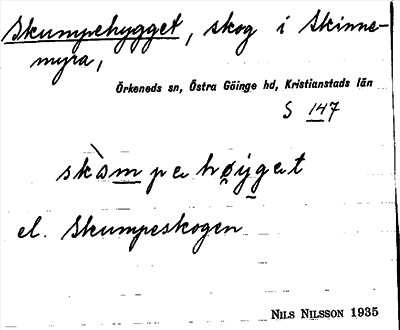 Skumpehygget, skog i Skinne-
myra,
Örkeneds sn, Östra Göinge hd, Kristianstads län
S 147
skàmpehøyget
el. Skumpeskogen
NILS NILSSON 1935